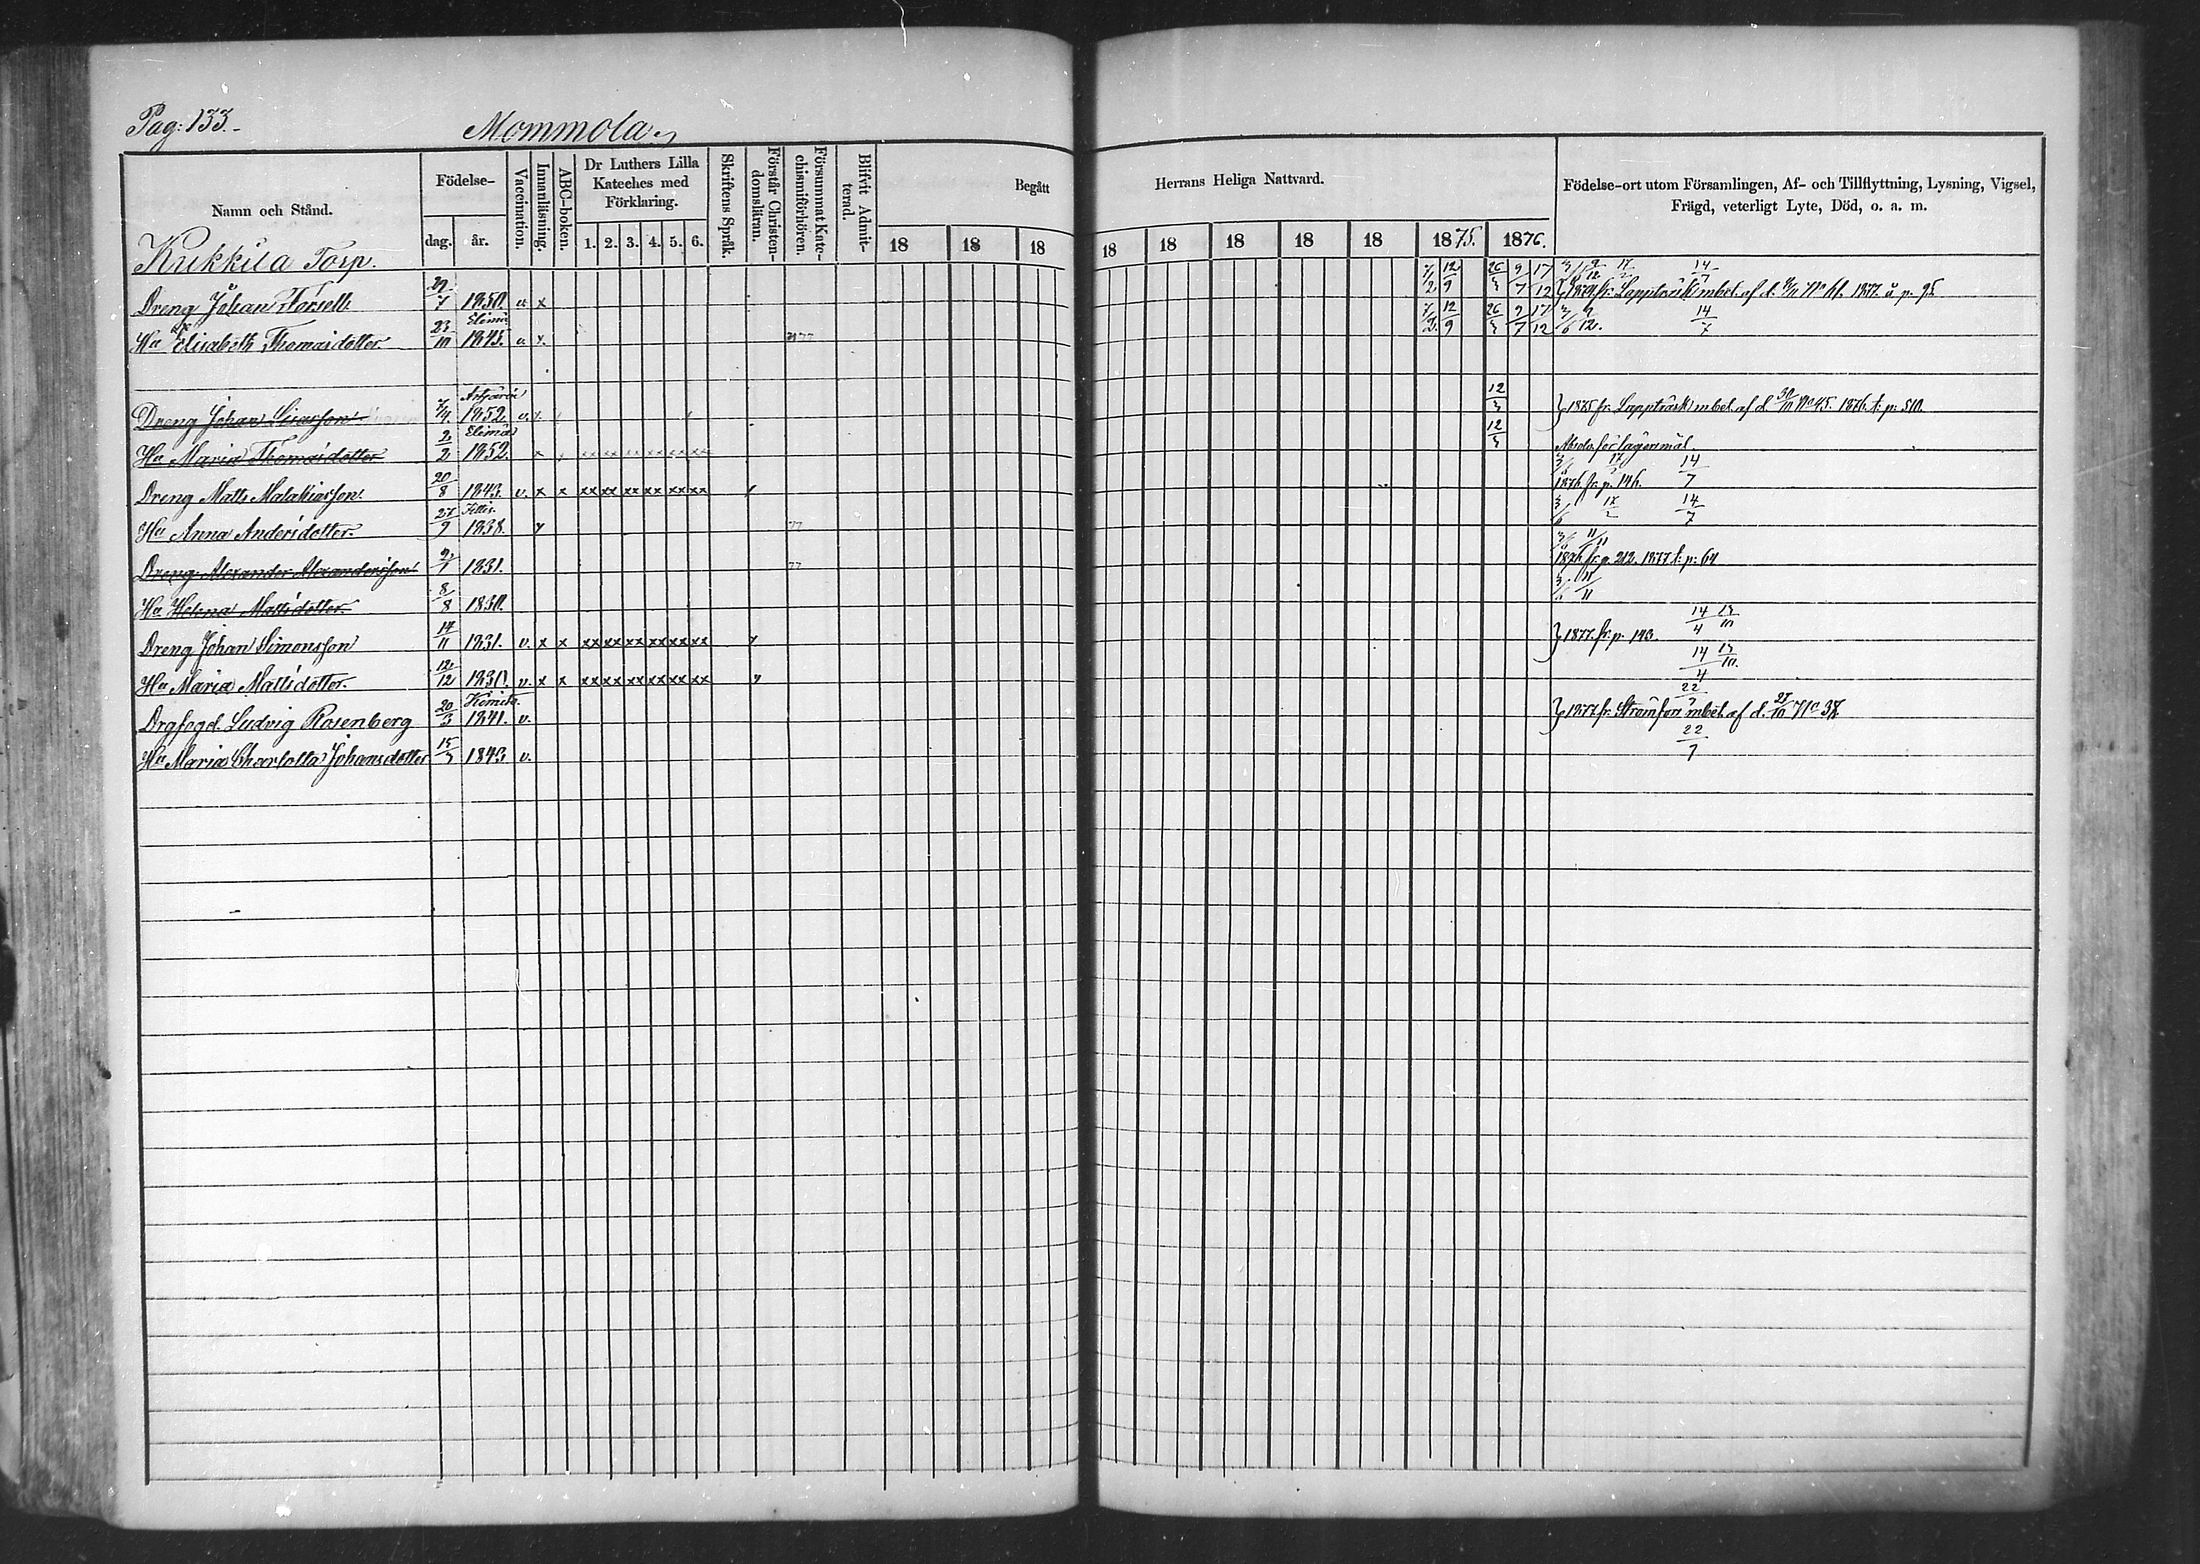 Pag: 133.
Mommola
Namn och Stånd.
Födelse-
dag.
år.
Vaccination.
Innanläsning.
ABC-boken.
Dr Luthers Lilla
Kateches med
Förklaring.
1. 2. 3. 4. 5. 6.
Skriftens Språk.
Förstår Christen-
domsläran.
Försummat Kate-
chismiförhören.
Blifvit Admit-
terad.
Begått
18 18 18
Herrans Heliga Nattvard.
18 18 18 18 18 1875. 1876.
Födelse-ort utom Församlingen, Af- och Tillflyttning, Lysning, Vigsel,
Frägd, veterligt Lyte, Död, o. a. m.
Kukkula Torp.
Dreng Johan Forsell 1850. v. x Lappträsk mbet. af d. 1877. å p. 95
Elimä
Hu Elisabeth Thomasdotter 23/10 1845. v. x.
Artjärvi
Dreng Johan 7/4 1852. v. 12 } 1875 fr. Lappträsk mbet. af d. 30/10 No 45. 1876. t. p. 510.
Elimä
Hu Maria Thomasdotter 2/2 1852. x xx xx xx xx xx xx 12
Dreng Matts Malakiasson 20/8 1843. v. x x xx xx xx xx xx xx 1876 fr. p. 146. 14/7
Hu Anna Andersdotter 27/9 1838. 17/2 14/7
Dreng Alexander Alexandersson 1831. 77 1876 fr. p. 212. 1877 t. p. 64
Hu Helena Mattsdotter 8/8 1830. 11/11
Dreng Johan Simonsson 14/11 1831. v. x x xx xx xx xx xx xx } 1877. fr. p. 143. 14/4
Hu Maria Mattsdotter 12/12 1830. v. x x xx xx xx xx xx xx 14/4
Kimito.
Drgfogd. Ludvig Rosenberg 20/3 1841. v. } 1877. fr. Strömfors mbet. af d. 27/10 No 37. 22/7
Hu Maria Charlotta Johansdotter 1843 v. 22/7